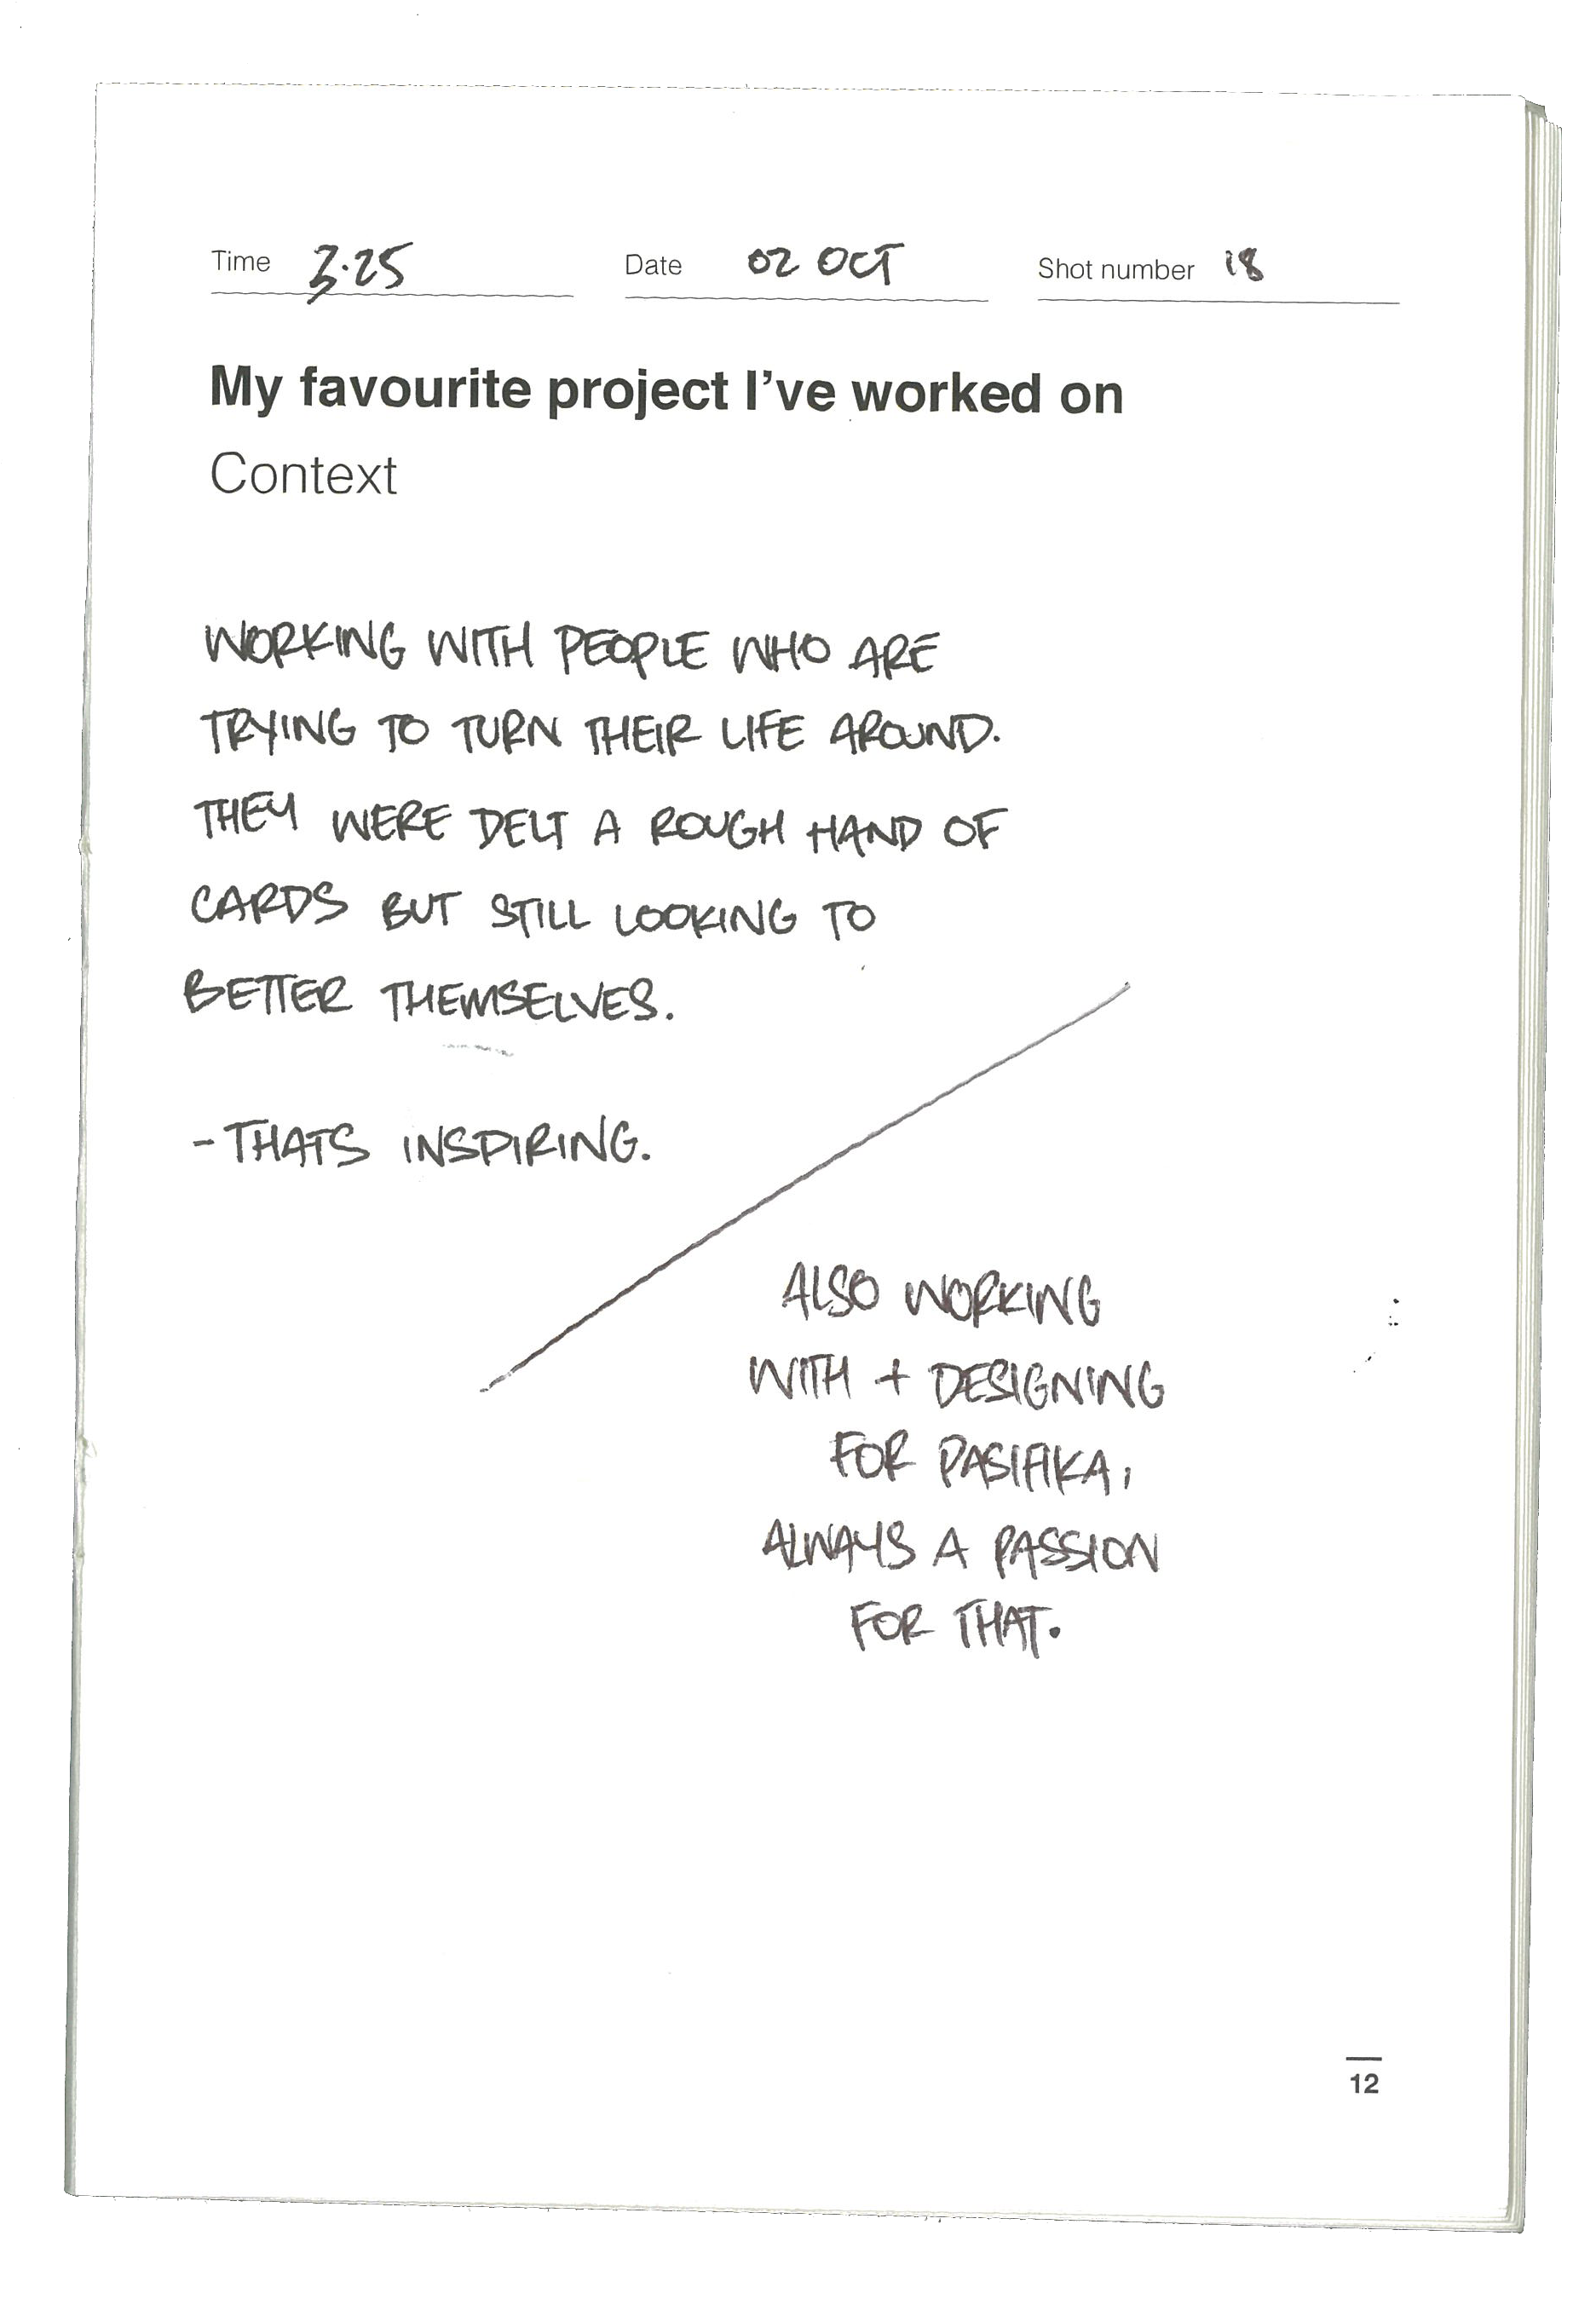 Time 3.25 Date 02 OCT Shot number 18
My favourite project I've worked on
Context
WORKING WITH PEOPLE WHO ARE
TRYING TO TURN THEIR LIFE AROUND.
THEY WERE DELT A ROUGH HAND OF
CARDS BUT STILL LOOKING TO
BETTER THEMSELVES.
- THATS INSPIRING.
ALSO WORKING
WITH + DESIGNING
FOR PASIFIKA,
ALWAYS A PASSION
FOR THAT.
12